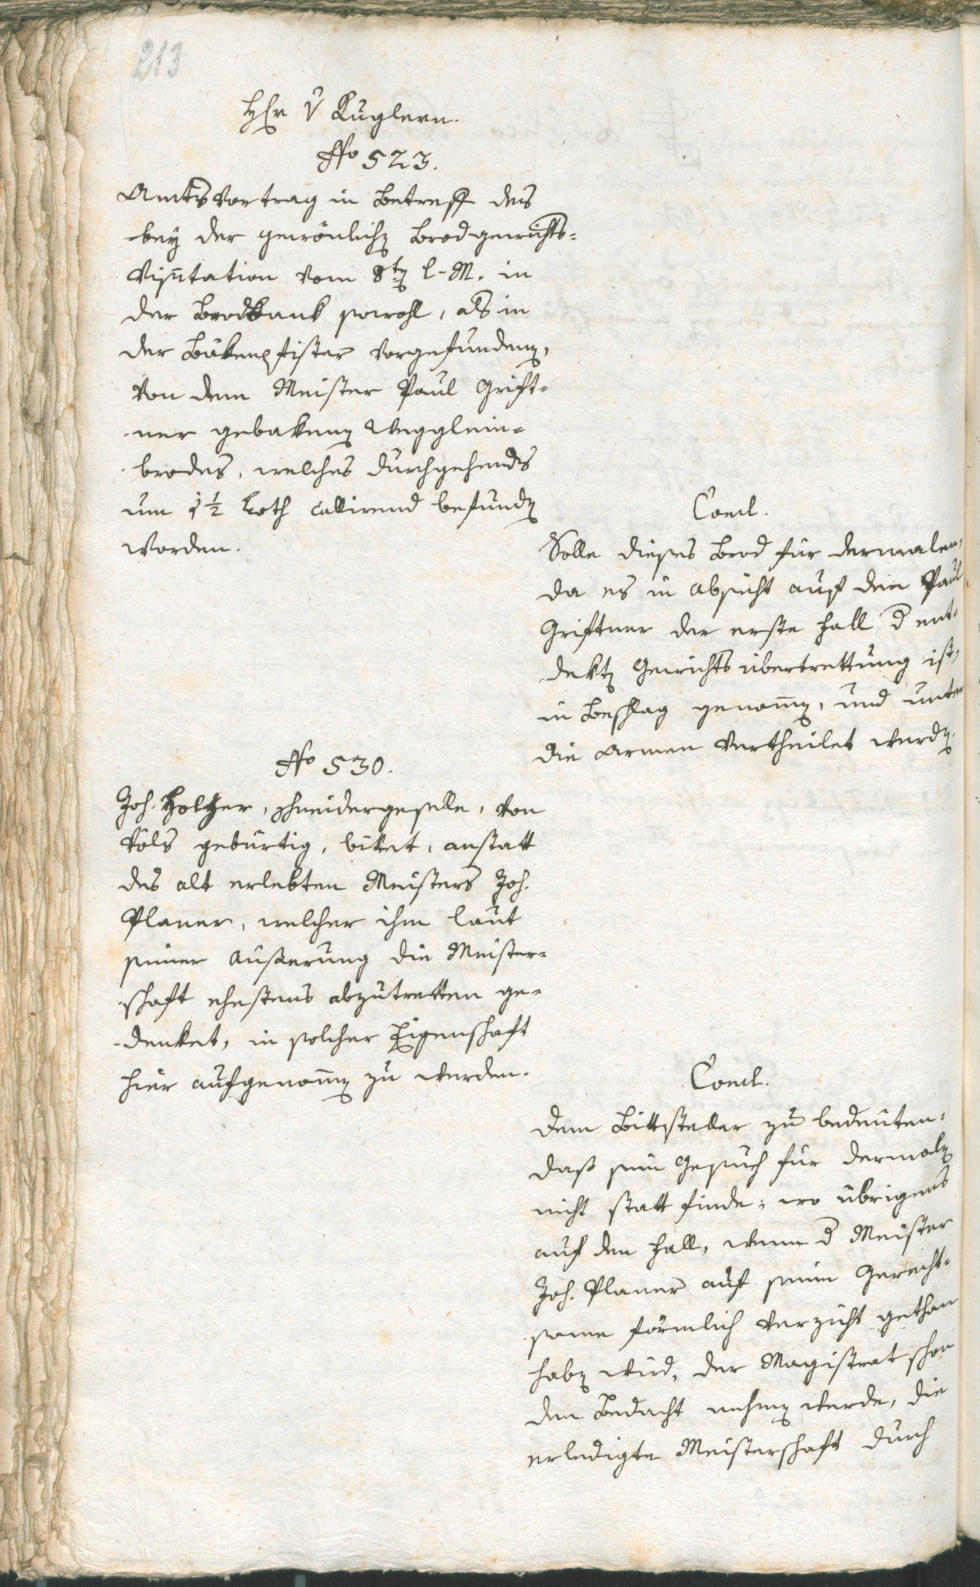 213
Hr v Kuglern.
No 523.
Amtsvortrag in Betreff des
bey der gewönlichen Brodgewichts-
Visitation vom 8ten l. M. in
der Brodbank sowohl, als in
der Bäkenpfister vorgefundenen,
von dem Meister Paul Grift-
ner gebakenen Wegglein-
brodes, welches durchgehends
um 1 1/2 Loth callirend befunden
worden.
Concl.
Solle dieses Brod für dermalen,
da es in Absicht auf den Paul
Griftner der erste Fall d ent-
dekten Gewichtsübertrettung ist,
in Beschlag genommen, und unter
die Armen vertheilet werden.
No 530.
Joh. Holtzer, Schneidergeselle, von
Völs gebürtig, bittet, anstatt
des alt erlebten Meisters Joh.
Planer, welcher ihm laut
seiner Äußerung die Meister-
schaft ehestens abzutretten ge-
denket, in solcher Eigenschaft
hier aufgenommen zu werden.
Concl.
Dem Bittsteller zu bedeuten:
daß sein Gesuch für dermalen
nicht statt finde; wo übrigens
auf den Fall, wenn d Meister
Joh. Planer auf seine Gerecht-
same förmlich Verzicht gethan
haben wird, der Magistrat schon
den Bedacht nehmen werde, die
erledigte Meisterschaft durch